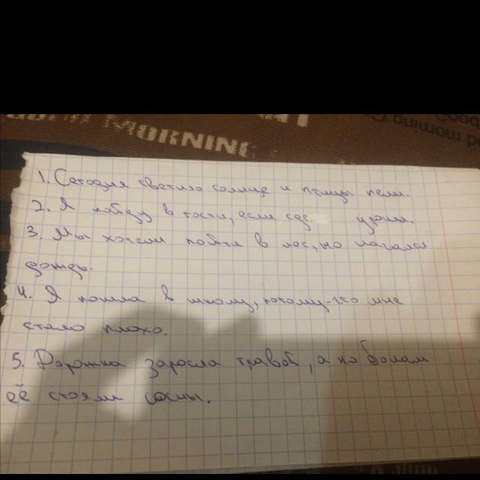 MORNING
1. Сегодня светило солнце и птицы пели.
2. Я пойду в гости, если сде уроки.
3. Мы хотели пойти в лес, но начался
дождь.
4. Я пошла в школу, потому-что мне
стало плохо.
5. Дорожка заросла травой, а по бокам
её стояли сосны.